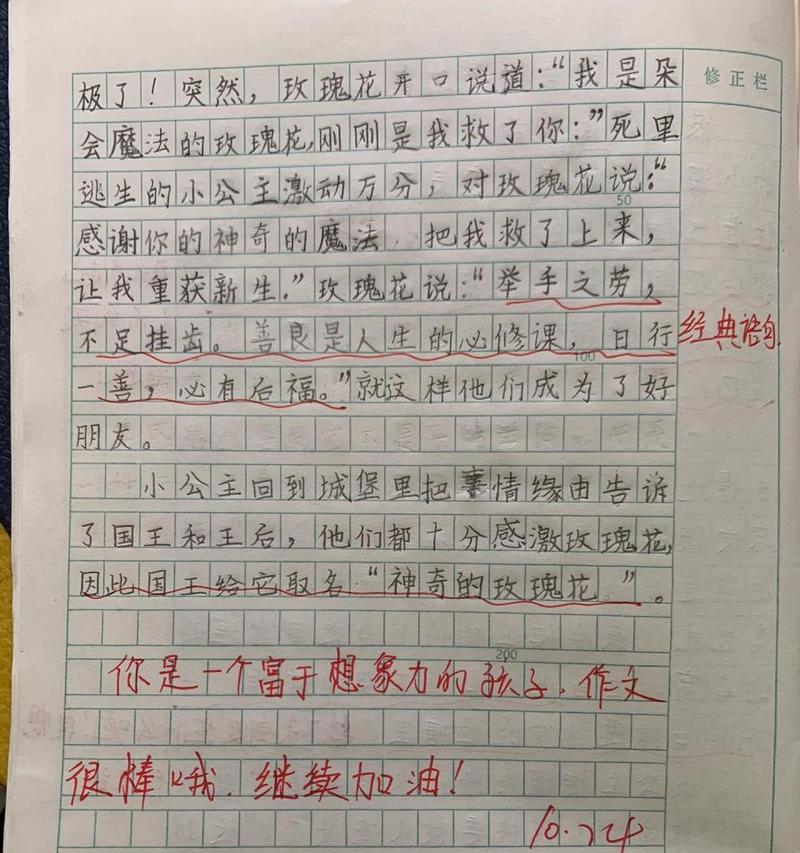 修正栏
极了！突然，玫瑰花开口说道：“我是朵
会魔法的玫瑰花，刚刚是我救了你：”死里
逃生的小公主激动万分，对玫瑰花说：“
50
感谢你的神奇的魔法．把我救了上来，
让我重获新生．”玫瑰花说：“举手之劳，
不足挂齿。善良是人生的必修课，日行
经典语句
100
一善，必有后福。”就这样他们成为了好
朋友。
小公主回到城堡里把事情缘由告诉
了国王和王后，他们都十分感激玫瑰花，
因此国王给它取名“神奇的玫瑰花。”。
200
你是一个富于想象力的孩子．作文
很棒哦．继续加油！
10.24